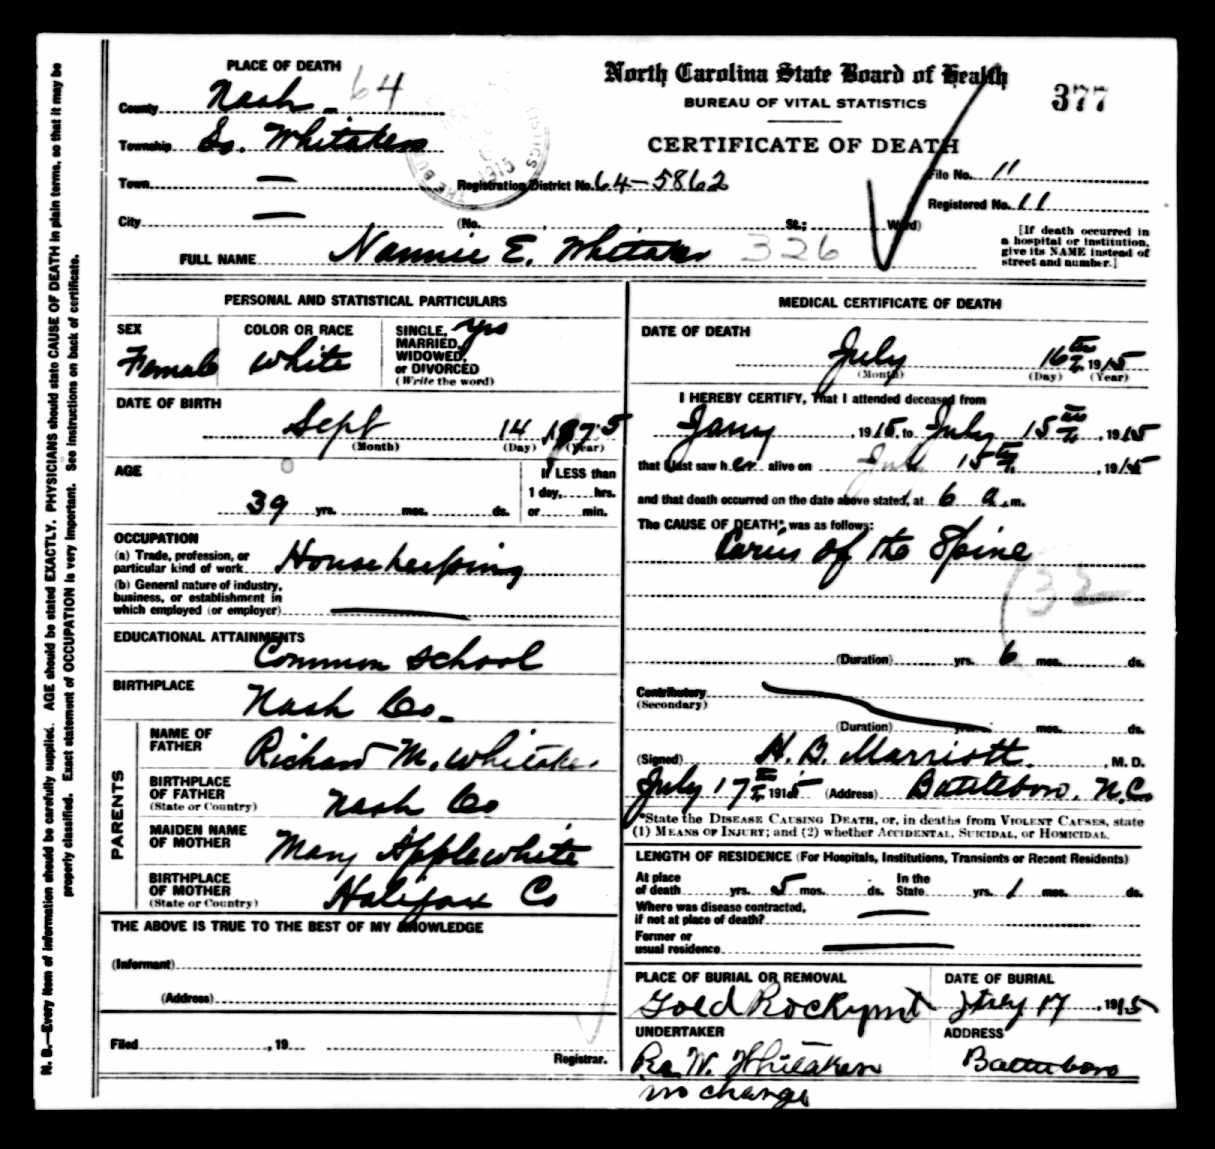 PLACE OF DEATH
County Nash 64
Township So. Whitakers
Town —
City —
North Carolina State Board of Health
BUREAU OF VITAL STATISTICS
CERTIFICATE OF DEATH
377
Registration District No. 64-5862
File No. 11
Registered No. 11
(No. , St.; Ward)
[If death occurred in a hospital or institution, give its NAME instead of street and number.]
FULL NAME Nannie E. Whitaker 326
PERSONAL AND STATISTICAL PARTICULARS
SEX
Female
COLOR OR RACE
White
SINGLE, yes
MARRIED,
WIDOWED,
or DIVORCED
(Write the word)
DATE OF BIRTH
Sept 14 1875
(Month) (Day) (Year)
AGE
39 yrs. mos. ds.
If LESS than
1 day, hrs.
or min.
OCCUPATION
(a) Trade, profession, or
particular kind of work Housekeeping
(b) General nature of industry,
business, or establishment in
which employed (or employer)
EDUCATIONAL ATTAINMENTS
Common school
BIRTHPLACE
Nash Co.
PARENTS
NAME OF
FATHER Richard M. Whitaker
BIRTHPLACE
OF FATHER
(State or Country) Nash Co
MAIDEN NAME
OF MOTHER Mary Applewhite
BIRTHPLACE
OF MOTHER
(State or Country) Halifax Co
THE ABOVE IS TRUE TO THE BEST OF MY KNOWLEDGE
(Informant)
(Address)
Filed , 19
Registrar.
MEDICAL CERTIFICATE OF DEATH
DATE OF DEATH
July 16th 1915
(Month) (Day) (Year)
I HEREBY CERTIFY, That I attended deceased from
Jany , 1915, to July 15th , 1915
that I last saw her alive on July 15th , 1915
and that death occurred on the date above stated, at 6 a.m.
The CAUSE OF DEATH* was as follows:
Caries of the Spine
32
(Duration) yrs. 6 mos. ds.
Contributory
(Secondary)
(Duration) yrs. mos. ds.
(Signed) H. B. Marriott. , M. D.
July 17th 1915 (Address) Battleboro, N.C.
*State the DISEASE CAUSING DEATH, or, in deaths from VIOLENT CAUSES, state
(1) MEANS OF INJURY; and (2) whether ACCIDENTAL, SUICIDAL, or HOMICIDAL.
LENGTH OF RESIDENCE (For Hospitals, Institutions, Transients or Recent Residents)
At place
of death yrs. 5 mos. ds. In the
State yrs. 1 mos. ds.
Where was disease contracted,
if not at place of death? —
Former or
usual residence —
PLACE OF BURIAL OR REMOVAL
Gold Rockymt
DATE OF BURIAL
July 17 , 1915
UNDERTAKER
W. Whitaker
ADDRESS
Battleboro
no change
N. B.—Every item of information should be carefully supplied. AGE should be stated EXACTLY. PHYSICIANS should state CAUSE OF DEATH in plain terms, so that it may be
properly classified. Exact statement of OCCUPATION is very important. See instructions on back of certificate.